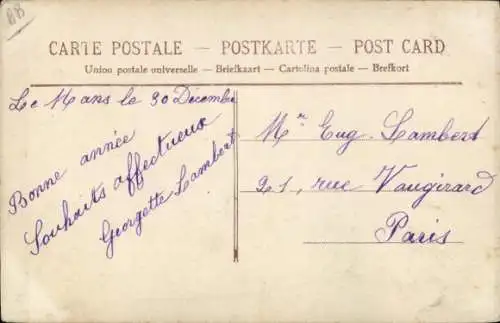 88
CARTE POSTALE — POSTKARTE — POST CARD
Union postale universelle — Briefkaart — Cartolina postale — Brefkort
Le Mans le 30 Décembre
Bonne année
Souhaits affectueux
Georgette Lambert
Mr Eug. Lambert
21, rue Vaugirard
Paris